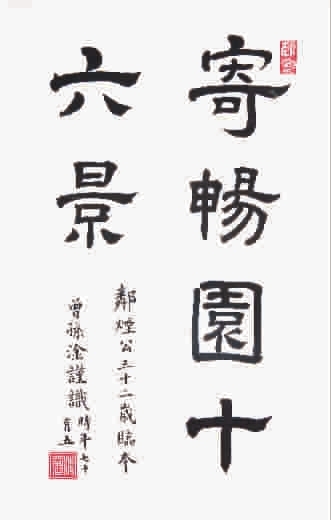 寄暢園十
六景
鄰煙公三十二歲臨本
曾孫淦謹識時年七十
有五